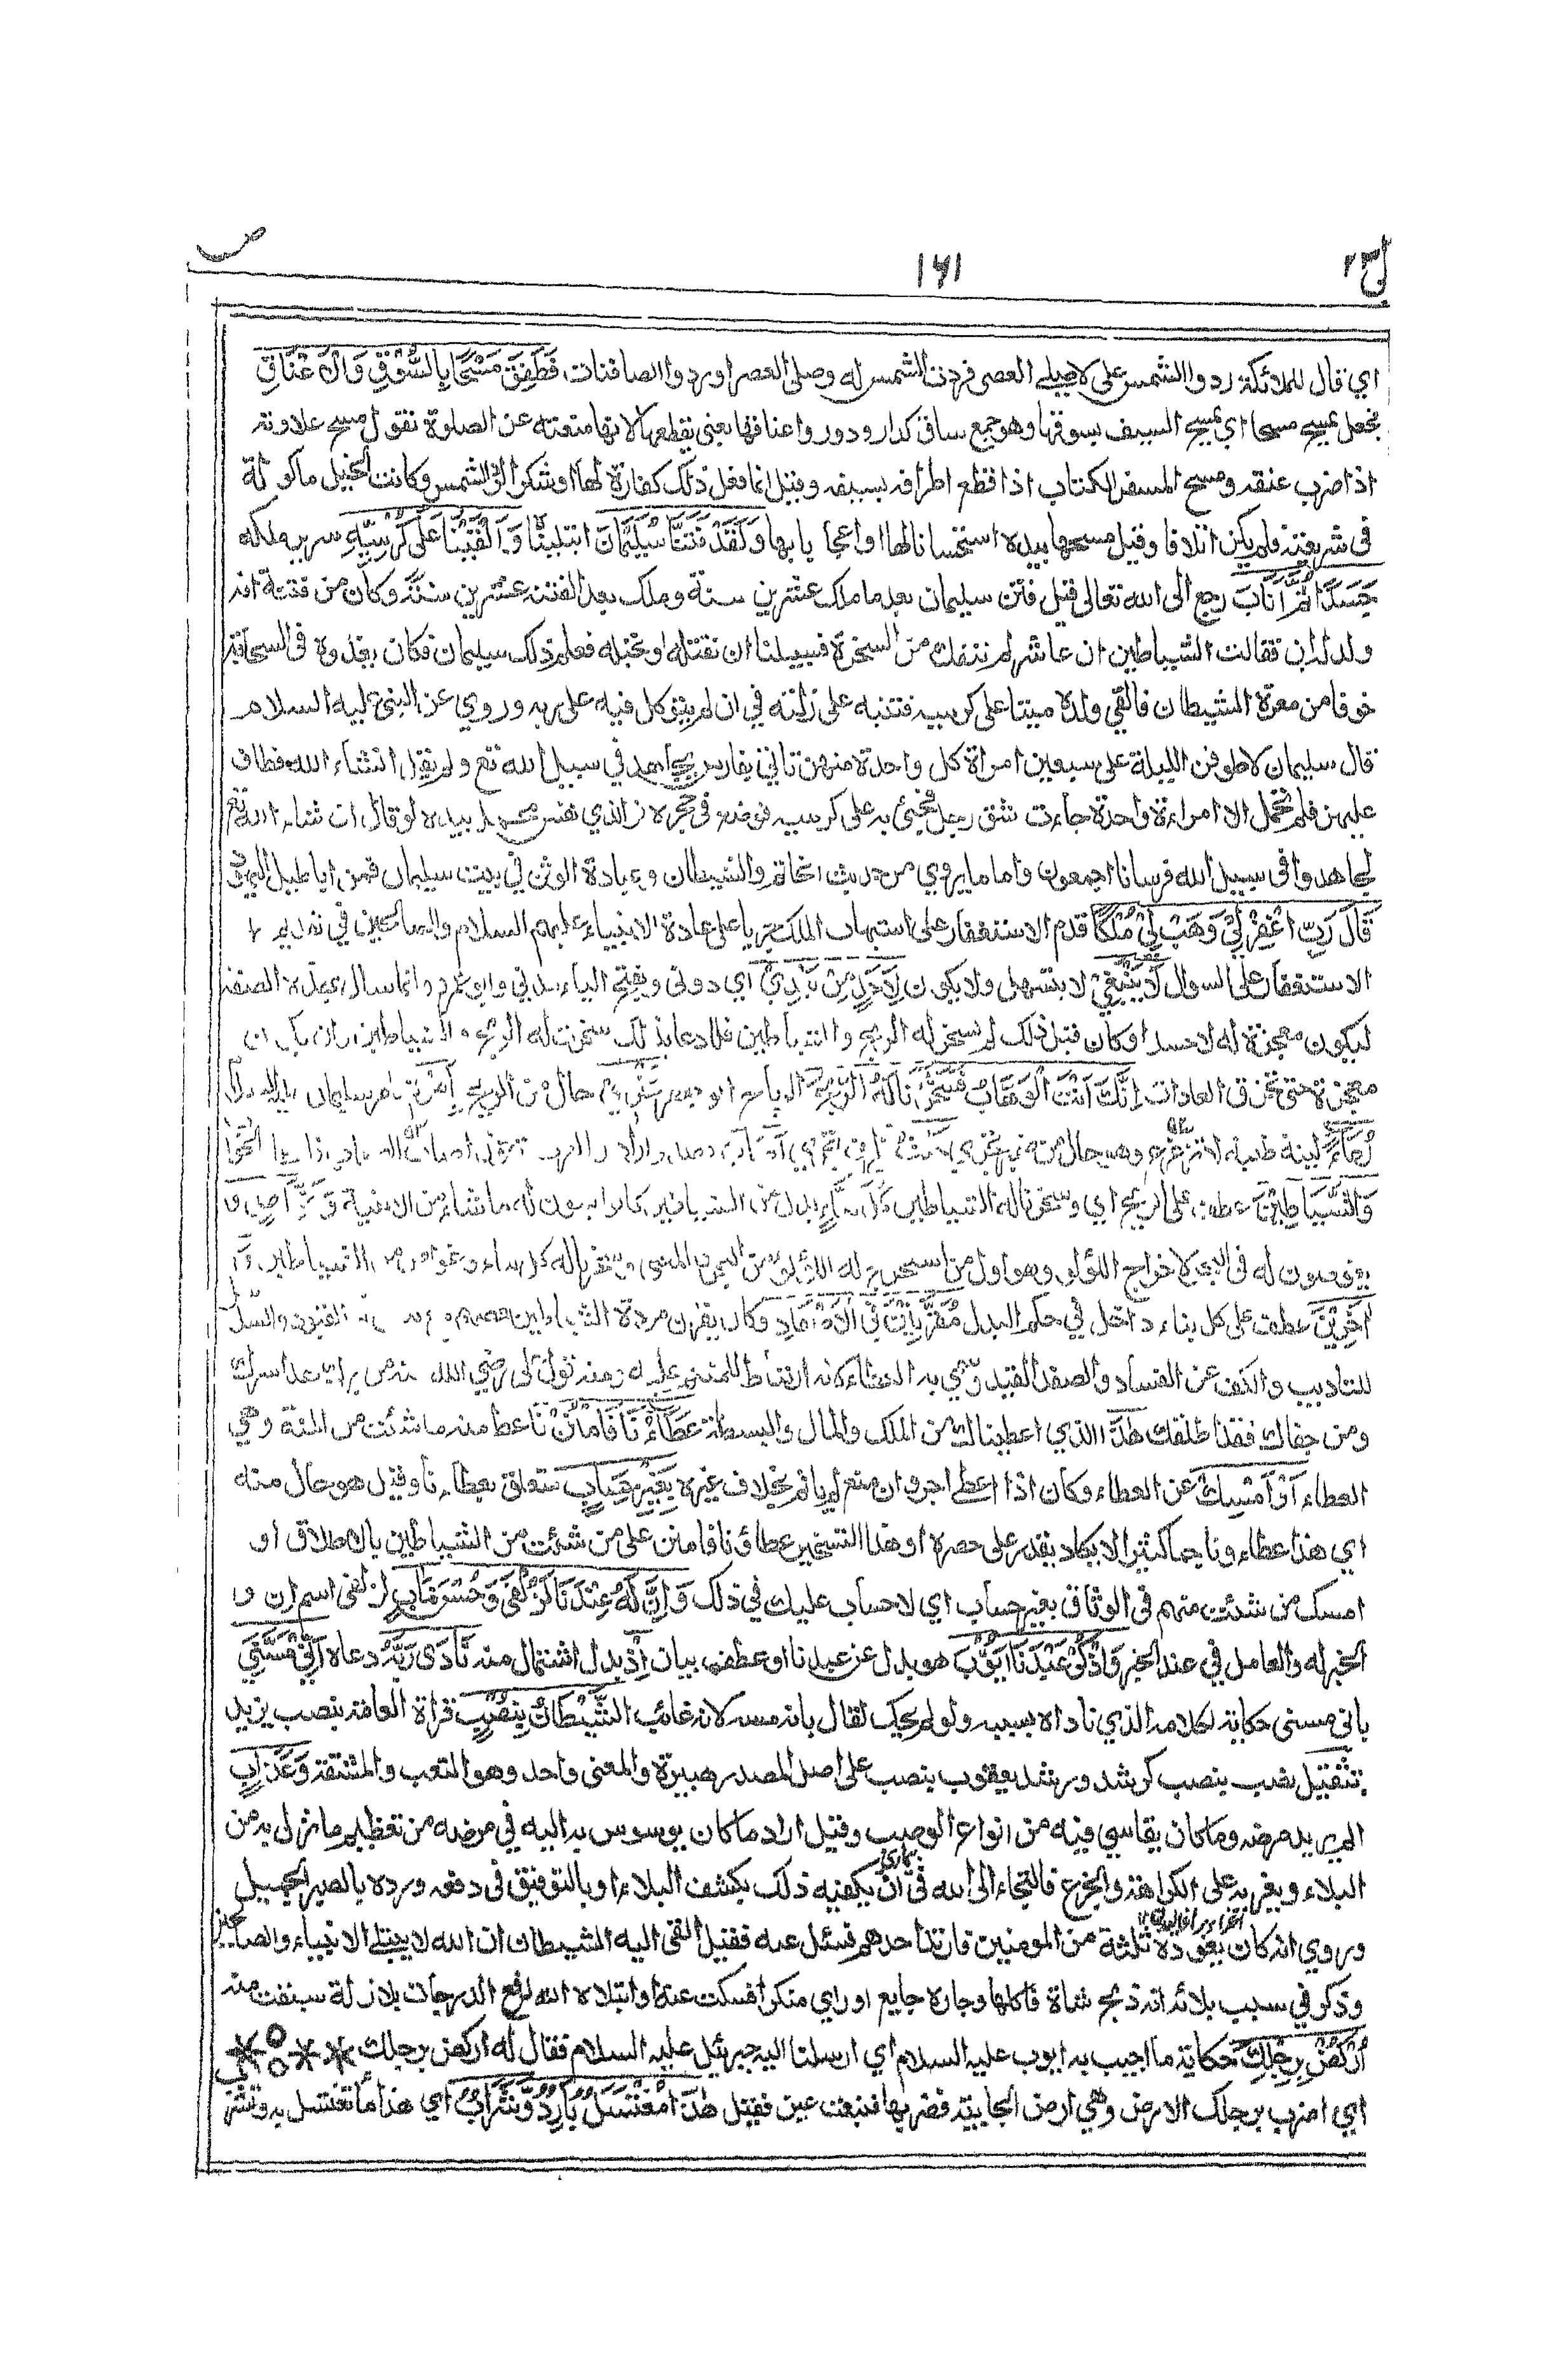 ص ١٦١ ٢٣
اي قال للملائكة ردوا الشمس علي لاصلي العصر فردت الشمس له وصلى العصر او ردوا الصافنات فَطَفِقَ مَسْحًا بِالسُّوْقِ وَالْاَعْنَاقِ
فجعل يمسح مسحا اي يمسح السيف بسوقها وهو جمع ساق كدار ودور واعناقها يعنى يقطعها لانها منعته عن الصلوة تقول مسح علاوته
اذا ضرب عنقه ومسح المسفر الكتاب اذا قطع اطرافه بسيفه وقيل انما فعل ذلك كفارة لها او شكرا لرد الشمس وكانت الخيل ماكولة
فى شريعته فلم يكن اتلافا وقيل مسحها بيده استحسانا لها او اعجابا بها وَلَقَدْ فَتَنَّا سُلَيْمَانَ ابتليناه وَاَلْقَيْنَا عَلَى كُرْسِيِّهِ سرير ملكه
جَسَدًا ثُمَّ اَنَابَ رجع الى الله تعالى قيل فتن سليمان بعد ما ملك عشرين سنة وملك بعد الفتنة عشرين سنة وكان من فتنة انه
ولد له ابن فقالت الشياطين ان عاش لم ننفك من السخرة فسبيلنا ان نقتله او نخبله فعلم ذلك سليمان فكان يغذوه فى السحابة
خوفا من معرة الشيطان فالقي ولده ميتا على كرسيه فتنبه على زلته في ان لم يتوكل فيه على ربه وروي عن النبي عليه السلام
قال سليمان لاطوفن الليلة على سبعين امراة كل واحدة منهن تاتي بفارس يجاهد في سبيل الله تع ولم يقل انشاء الله فطاف
عليهن فلم تحمل الا امراءة واحدة جاءت بشق رجل فجيئ به على كرسيه فوضع فى حجره فوالذي نفس محمد بيده لو قال ان شاء الله تع
لجاهدوا فى سبيل الله فرسانا اجمعون واما ما يروي من حديث الخاتم والشيطان وعبادة الوثن في بيت سليمان فمن اباطيل اليهود
قَالَ رَبِّ اغْفِرْ لِيْ وَهَبْ لِيْ مُلْكًا قدم الاستغفار على استيهاب الملك جريا على عادة الانبياء عليهم السلام والصالحين في تقديم
الاستغفار على السوال لَا يَنْبَغِيْ لا يتسهل ولا يكون لِاَحَدٍ مِنْ بَعْدِيْ اي دوني وبفتح الياء مدني وابو عمرو وانما سال بهذه الصفة
ليكون معجزة له لا حسدا وكان قبل ذلك لم يسخر له الريح والشياطين فلما دعا بذلك سخرت له الريح والشياطين
معجزة حتى تخرق العادات اِنَّكَ اَنْتَ الْوَهَّابُ فَسَخَّرْنَا لَهُ الرِّيْحَ الرياح ابو جعفر تَجْرِيْ حال من الريح بِاَمْرِهِ بامر سليمان
رُخَاءً لينة طيبة لا تزعزع وهو حال من ضمير تجري حَيْثُ
وَالشَّيَاطِيْنَ عطف على الريح اي وسخرنا له الشياطين كُلَّ بَنَّاءٍ بدل من الشياطين كانوا يبنون له ما شاء من الابنية وَغَوَّاصٍ
يغوصون له فى البحر لاخراج اللؤلؤ وهو اول من استخرج له اللؤلؤ من البحر والمعنى وسخرنا له كل بناء وغواص من الشياطين
اٰخَرِيْنَ عطف على كل بناء داخل في حكم البدل مُقَرَّنِيْنَ فِي الْاَصْفَادِ وكان يقرن مردة الشياطين
للتاديب والكف عن الفساد والصفد القيد وسمي به العطاء لانه ارتباط للمنعم عليه ومنه قول على رضي الله عنه من برك فقد اسرك
ومن جفاك فقد اطلقك هٰذَا الذي اعطيناك من الملك والمال والبسطة عَطَاؤُنَا فَامْنُنْ فاعط منه ما شئت من المنة وهي
العطاء اَوْ اَمْسِكْ عن العطاء وكان اذا اعطى اجر وان منع لم ياثم بخلاف غيره بِغَيْرِ حِسَابٍ متعلق بعطاءنا وقيل هو حال منه
اي هذا عطاءونا جما كثيرا لا يكاد يقدر على حصره او هذا التسخير عطاؤنا فامنن على من شئت من الشياطين بالاطلاق او
امسك من شئت منهم فى الوثاق بغير حساب اي لا حساب عليك في ذلك وَاِنَّ لَهُ عِنْدَنَا لَزُلْفٰى وَحُسْنَ مَاٰبٍ لزلفى اسم ان و
الخبر له والعامل في عند الخبر وَاذْكُرْ عَبْدَنَا اَيُّوْبَ هو بدل عن عبدنا او عطف بيان اِذْ بدل اشتمال منه نَادٰى رَبَّهٗ دعاه اَنِّيْ مَسَّنِيَ
باني مسنى حكاية لكلامه الذي ناداه بسببه ولو لم يحك لقال بانه مسه لانه غائب الشَّيْطَانُ بِنُصْبٍ قراة العامة بنصب يزيد
تثقيل نصب بنصب كرشد ورشد يعقوب بنصب على اصل المصدر هبيرة والمعنى واحد وهو التعب والمشقة وَعَذَابٍ
الم يريد مرضه وما كان يقاسي فيه من انواع الوصب وقيل اراد ما كان يوسوس به اليه في مرضه من تعظيم ما نزل به من
البلاء ويغريه على الكراهة والجزع فالتجاء الى الله في ان يكفيه ذلك بكشف البلاء او بالتوفيق فى دفعه ورده بالصبر الجميل
وروي انه كان يعوده ثلثة من المومنين فارتد احدهم فسئل عنه فقيل القى اليه الشيطان ان الله لا يبتلي الانبياء والصالحين
وذكر في سبب بلائه انه ذبح شاة فاكلها وجاره جايع او راي منكرا فسكت عنه او ابتلاه الله لرفع الدرجات بلا زلة سبقت منه
اُرْكُضْ بِرِجْلِكَ حكاية ما اجيب به ايوب عليه السلام اي ارسلنا اليه جبرئيل عليه السلام فقال له اركض برجلك
اي اضرب برجلك الارض وهي ارض الجابية فضربها فنبعت عين فقيل هٰذَا مُغْتَسَلٌ بَارِدٌ وَّشَرَابٌ اي هذا ما تغتسل به وتشر